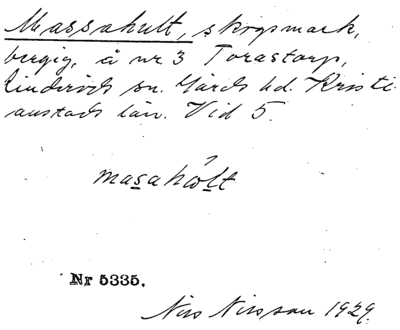 Massahult, skogsmark,
bergig, å nr 3 Torastorp,
Linderöds sn. Gärds hd. Kristi-
anstads län. Vid 5.
masahult
Nr 5335.
Nils Nilsson 1929.